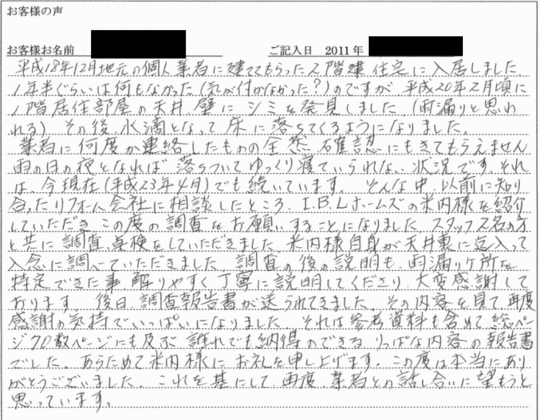 お客様の声
お客様お名前 ご記入日 2011年
平成18年12月地元の個人業者に建ててもらった2階建住宅に入居しました。
1年半ぐらいは何もなかった(気が付かなかった?)のですが、平成20年2月頃に
1階居住部屋の天井壁にシミを発見しました(雨漏りと思わ
れる) その後、水滴となって床に落ちてくるようになりました。
業者に何度か連絡したものの全然、確認にもきてもらえません
雨の日の夜となれば落ちついてゆっくり寝ていられない状況です。それ
は、今現在(平成23年4月)でも続いています。そんな中、以前に知り
合ったリフォーム会社に相談したところ、I.B.Lホームズの米内様を紹介
していただき、この度の調査をお願いすることになりました。スタッフ2名の方
と共に調査、点検をしていただきました。米内様自身が天井裏に入って
入念に調べていただきました。調査の後の説明も雨漏りケ所を
特定できた事、解りやすく丁寧に説明してくださり、大変感謝して
おります。後日、調査報告書が送られてきました。その内容を見て、再度
感謝の気持でいっぱいになりました。それは参考資料も含めて総ペー
ジ70数ページにも及ぶ誰れでも納得のできるりっぱな内容の報告書
でした。あらためて米内様にお礼を申し上げます。この度は本当にあり
がとうございました。これを基にして、再度、業者との話し合いに望もうと
思っています。